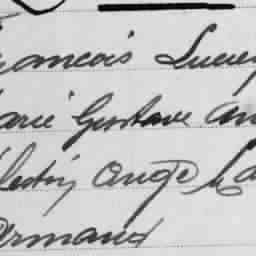 rancois Lucie
arie Gustave An
lestin Ange La
ermand